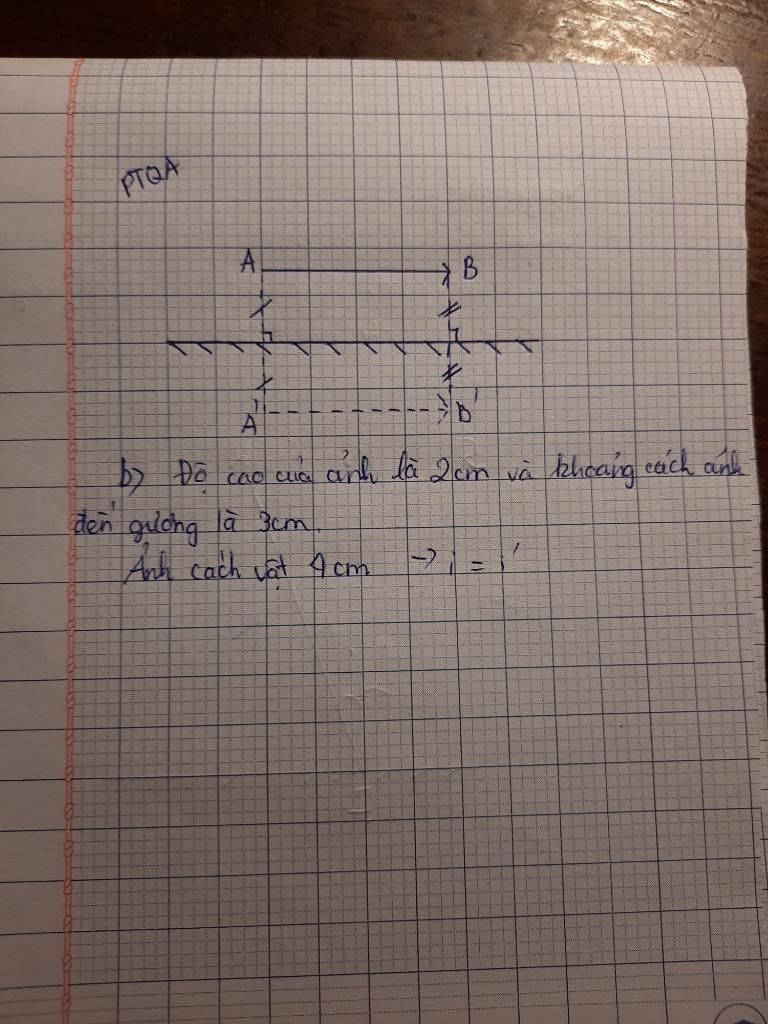 PTQA
A B
A' B'
b) Độ cao của ảnh là 2cm và khoảng cách ảnh
đến gương là 3cm.
Ảnh cách vật 4cm → i = i'